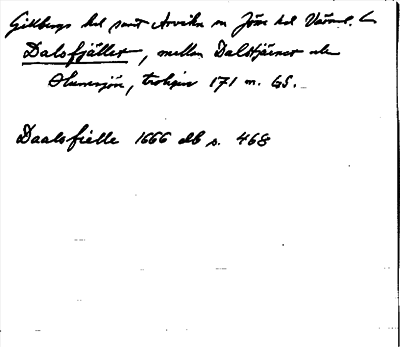 Gillbergs hd samt Arvika o Jösse hd Värml. L
Dalsfjället, mellan Dalstjärnet och
Hursjön, troligen 171 m. GS.
Daalsfielle 1666 db s. 468